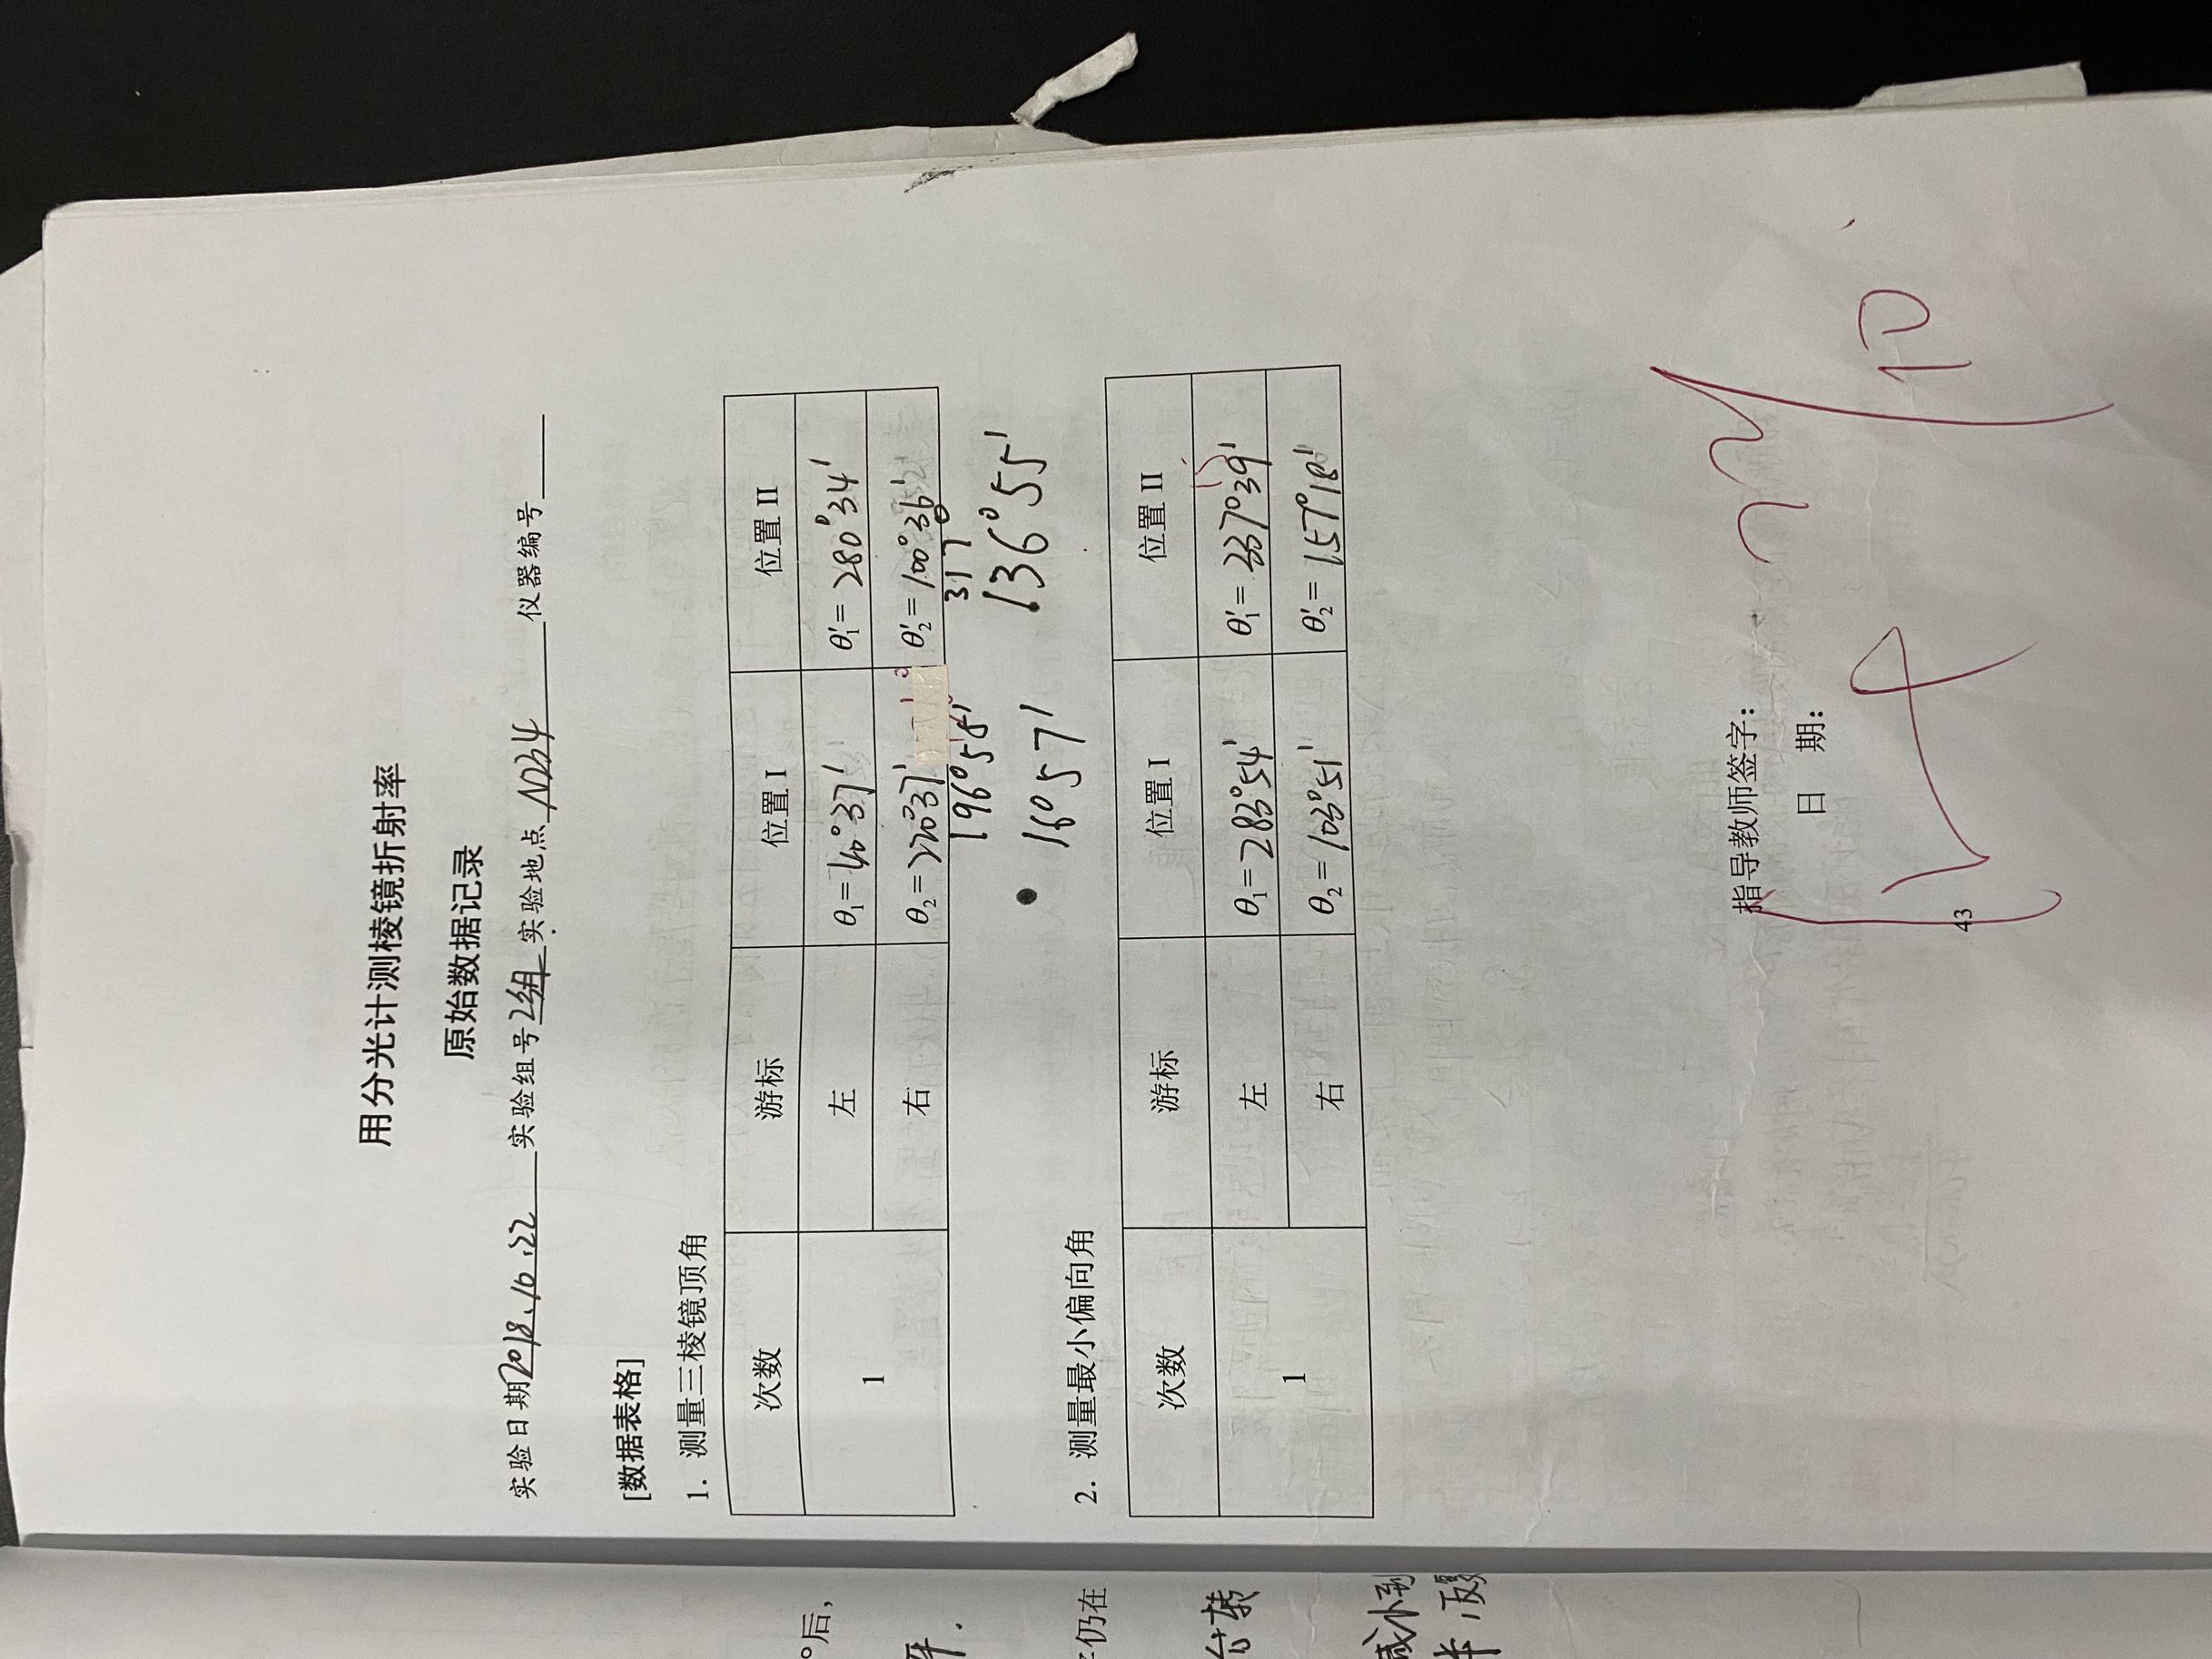 用分光计测棱镜折射率
原始数据记录
实验日期2018.10.22 实验组号2组 实验地点N234 仪器编号
[数据表格]
1. 测量三棱镜顶角
次数 游标 位置 I 位置 II
1 左 θ₁=40°37′ θ₁′=280°34′
右 θ₂=220°37′ θ₂′=100°36′
196°58′ 317°
16°57′ 136°55′
2. 测量最小偏向角
次数 游标 位置 I 位置 II
15
1 左 θ₁=283°54′ θ₁′=337°39′
右 θ₂=103°51′ θ₂′=157°18′
指导教师签字：
日 期：
22/10
43
°后，
平.
仍在
台转
减小到
反复